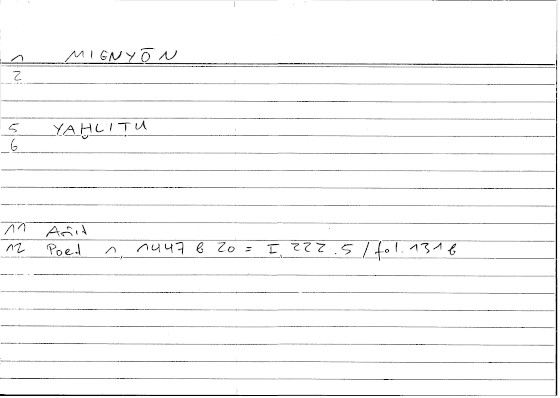 1 MIGNYŌN
2
5 YAḤLIṬU
6
11 Añid
12 Poed 1, 1447 b 20 = I, 222.5 / fol. 131 b